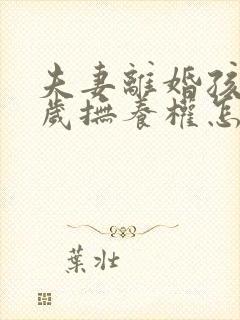 夫妻離婚孩
歲撫養權怎
葉壯